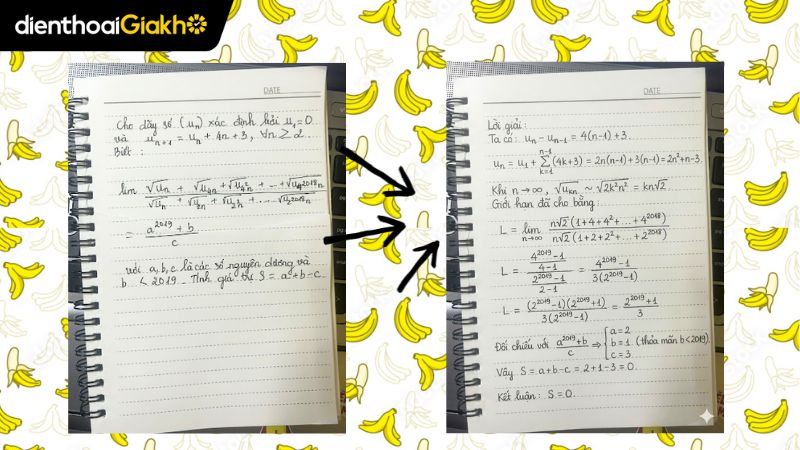 dienthoaiGiakho
DATE
Cho dãy số (uₙ) xác định bởi u₁=0
và uₙ₊₁ = uₙ + 4n + 3, ∀n ≥ 2.
Biết :
lim (√uₙ + √u₄ₙ + √u₄²ₙ + ... + √u₄²⁰¹⁸ₙ) / (√uₙ + √u₂ₙ + √u₂²ₙ + ... √u₂²⁰¹⁸ₙ)
= (a²⁰¹⁹ + b) / c
với a, b, c là các số nguyên dương và
b < 2019. Tính giá trị S = a+b-c.
DATE
Lời giải:
Ta có: uₙ - uₙ₋₁ = 4(n-1) + 3.
uₙ = u₁ + ∑ₖ₌₁ⁿ⁻¹ (4k+3) = 2n(n-1) + 3(n-1) = 2n²+n-3.
Khi n→∞, √uₖₙ ~ √2k²n² = kn√2.
Giới hạn đã cho bằng
L = lim n→∞ n√2 (1+4+4²+...+4²⁰¹⁸) / n√2 (1+2+2²+...+2²⁰¹⁸)
L = ((4²⁰¹⁹-1)/(4-1)) / ((2²⁰¹⁹-1)/(2-1)) = (4²⁰¹⁹-1) / 3(2²⁰¹⁹-1)
L = (2²⁰¹⁹-1)(2²⁰¹⁹+1) / 3(2²⁰¹⁹-1) = (2²⁰¹⁹+1) / 3
Đối chiếu với (a²⁰¹⁹+b)/c ⇒ { a=2 b=1 c=3 (thỏa mãn b<2019).
Vậy S = a+b-c = 2+1-3=0.
Kết luận: S=0.